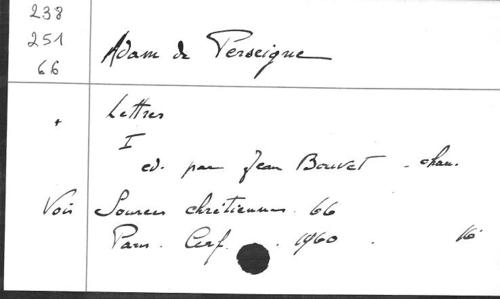 238
251
66
Adam de Perseigne
+ Lettres
I
ed. par Jean Bouvet - chan.
Voir Sources chrétiennes. 66
Paris. Cerf. . 1960 . 16